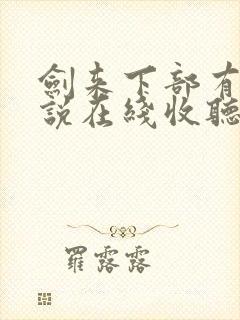 劍來下部有
說在綫收聽
羅露露